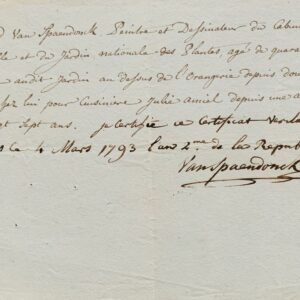 d Van Spaendonck Peintre et Dessinateur du Cabin
le et du Jardin nationale des Plantes, agé de quara
audit Jardin au dessus de l'Orangerie depuis dou
chez lui pour Cuisiniere Julie Amiel depuis une a
pt sept ans. je certifie ce Certificat verita
s ce 4 Mars 1793 l'an 2.me de la Repub
Van Spaendonck